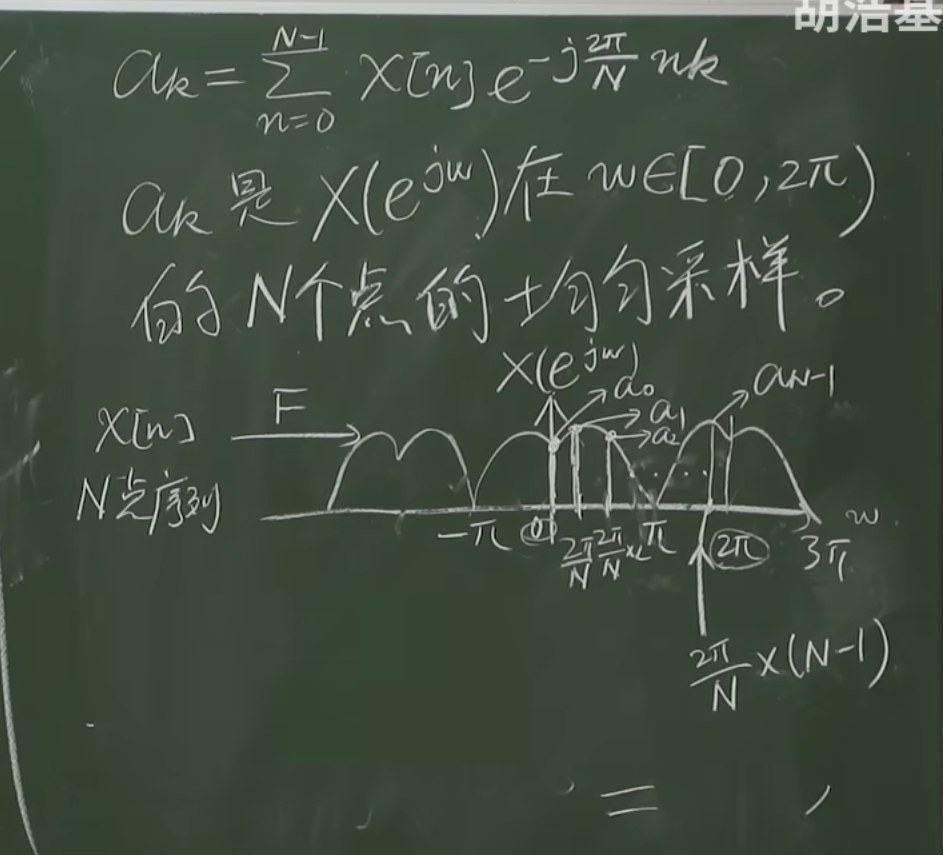 胡浩基
a_k = \sum_{n=0}^{N-1} x[n] e^{-j\frac{2π}{N}nk}
a_k 是 X(e^{jw}) 在 w∈[0, 2π)
的 N个点的均匀采样。
X(e^{jw})
a_0
a_1
a_2
a_{N-1}
x[n]
F
N点序列
-π 0 \frac{2π}{N} \frac{2π}{N}×2 π 2π 3π w
\frac{2π}{N}×(N-1)
=